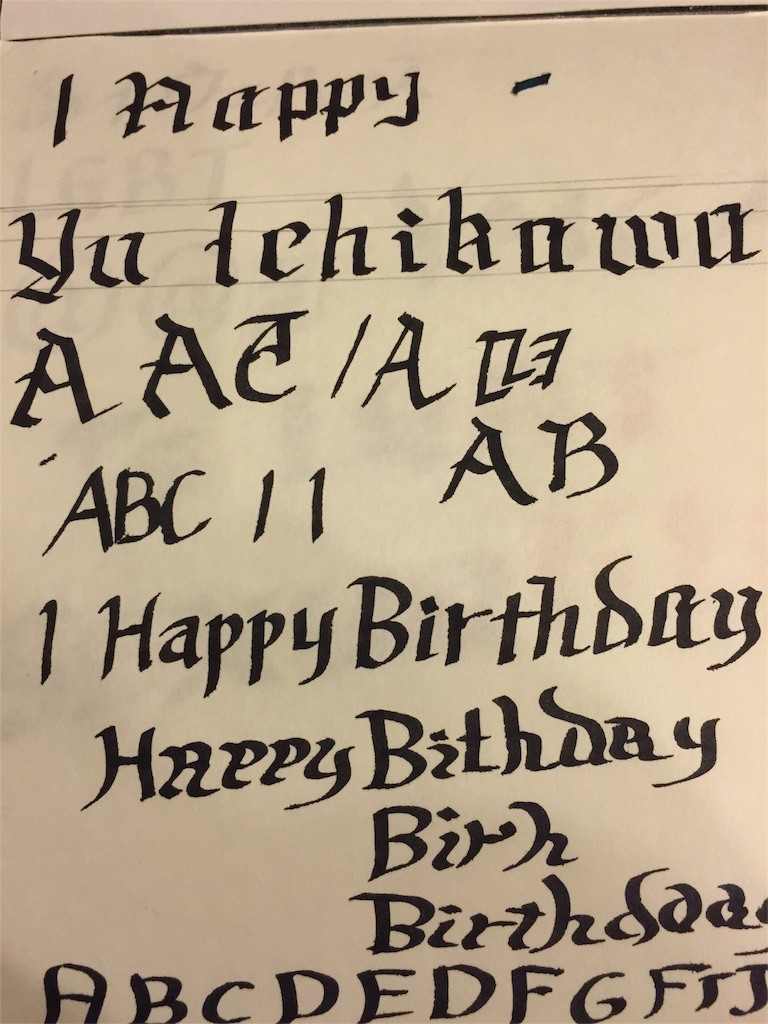 I Happy
Yu Ichikawa
A A / A
AB
ABC I I
I Happy Birthday
Happy Bithday
Birh
Birthdaa
ABCDEDFG